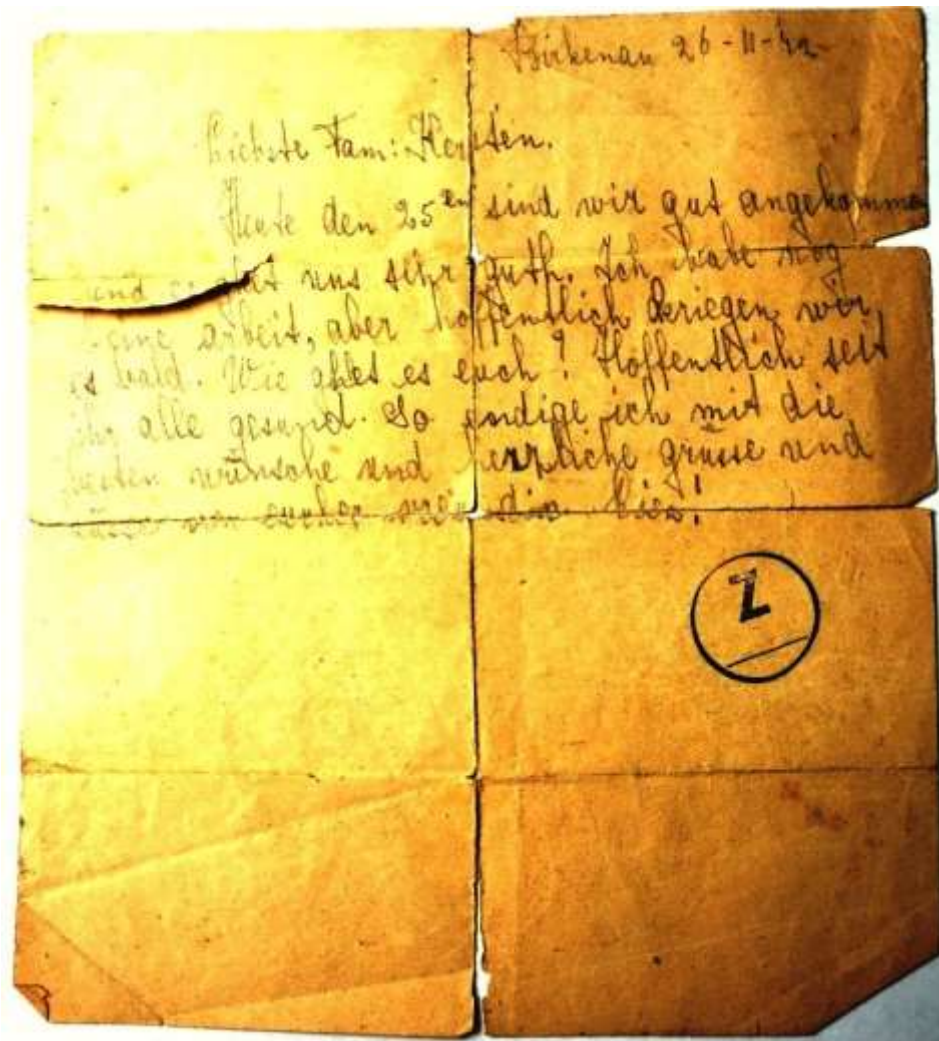 Birkenau 26-11-42
Liebste Fam: Kersten.
Heute den 25en sind wir gut angekomme
und es geht uns sehr guth. Ich habe nog
keine arbeit, aber hoffentlich kriegen wir
es bald. Wie geht es euch? Hoffentlich seit
ihr alle gesund. So endige ich mit die
besten wünsche und herzliche grüsse und
von
Z